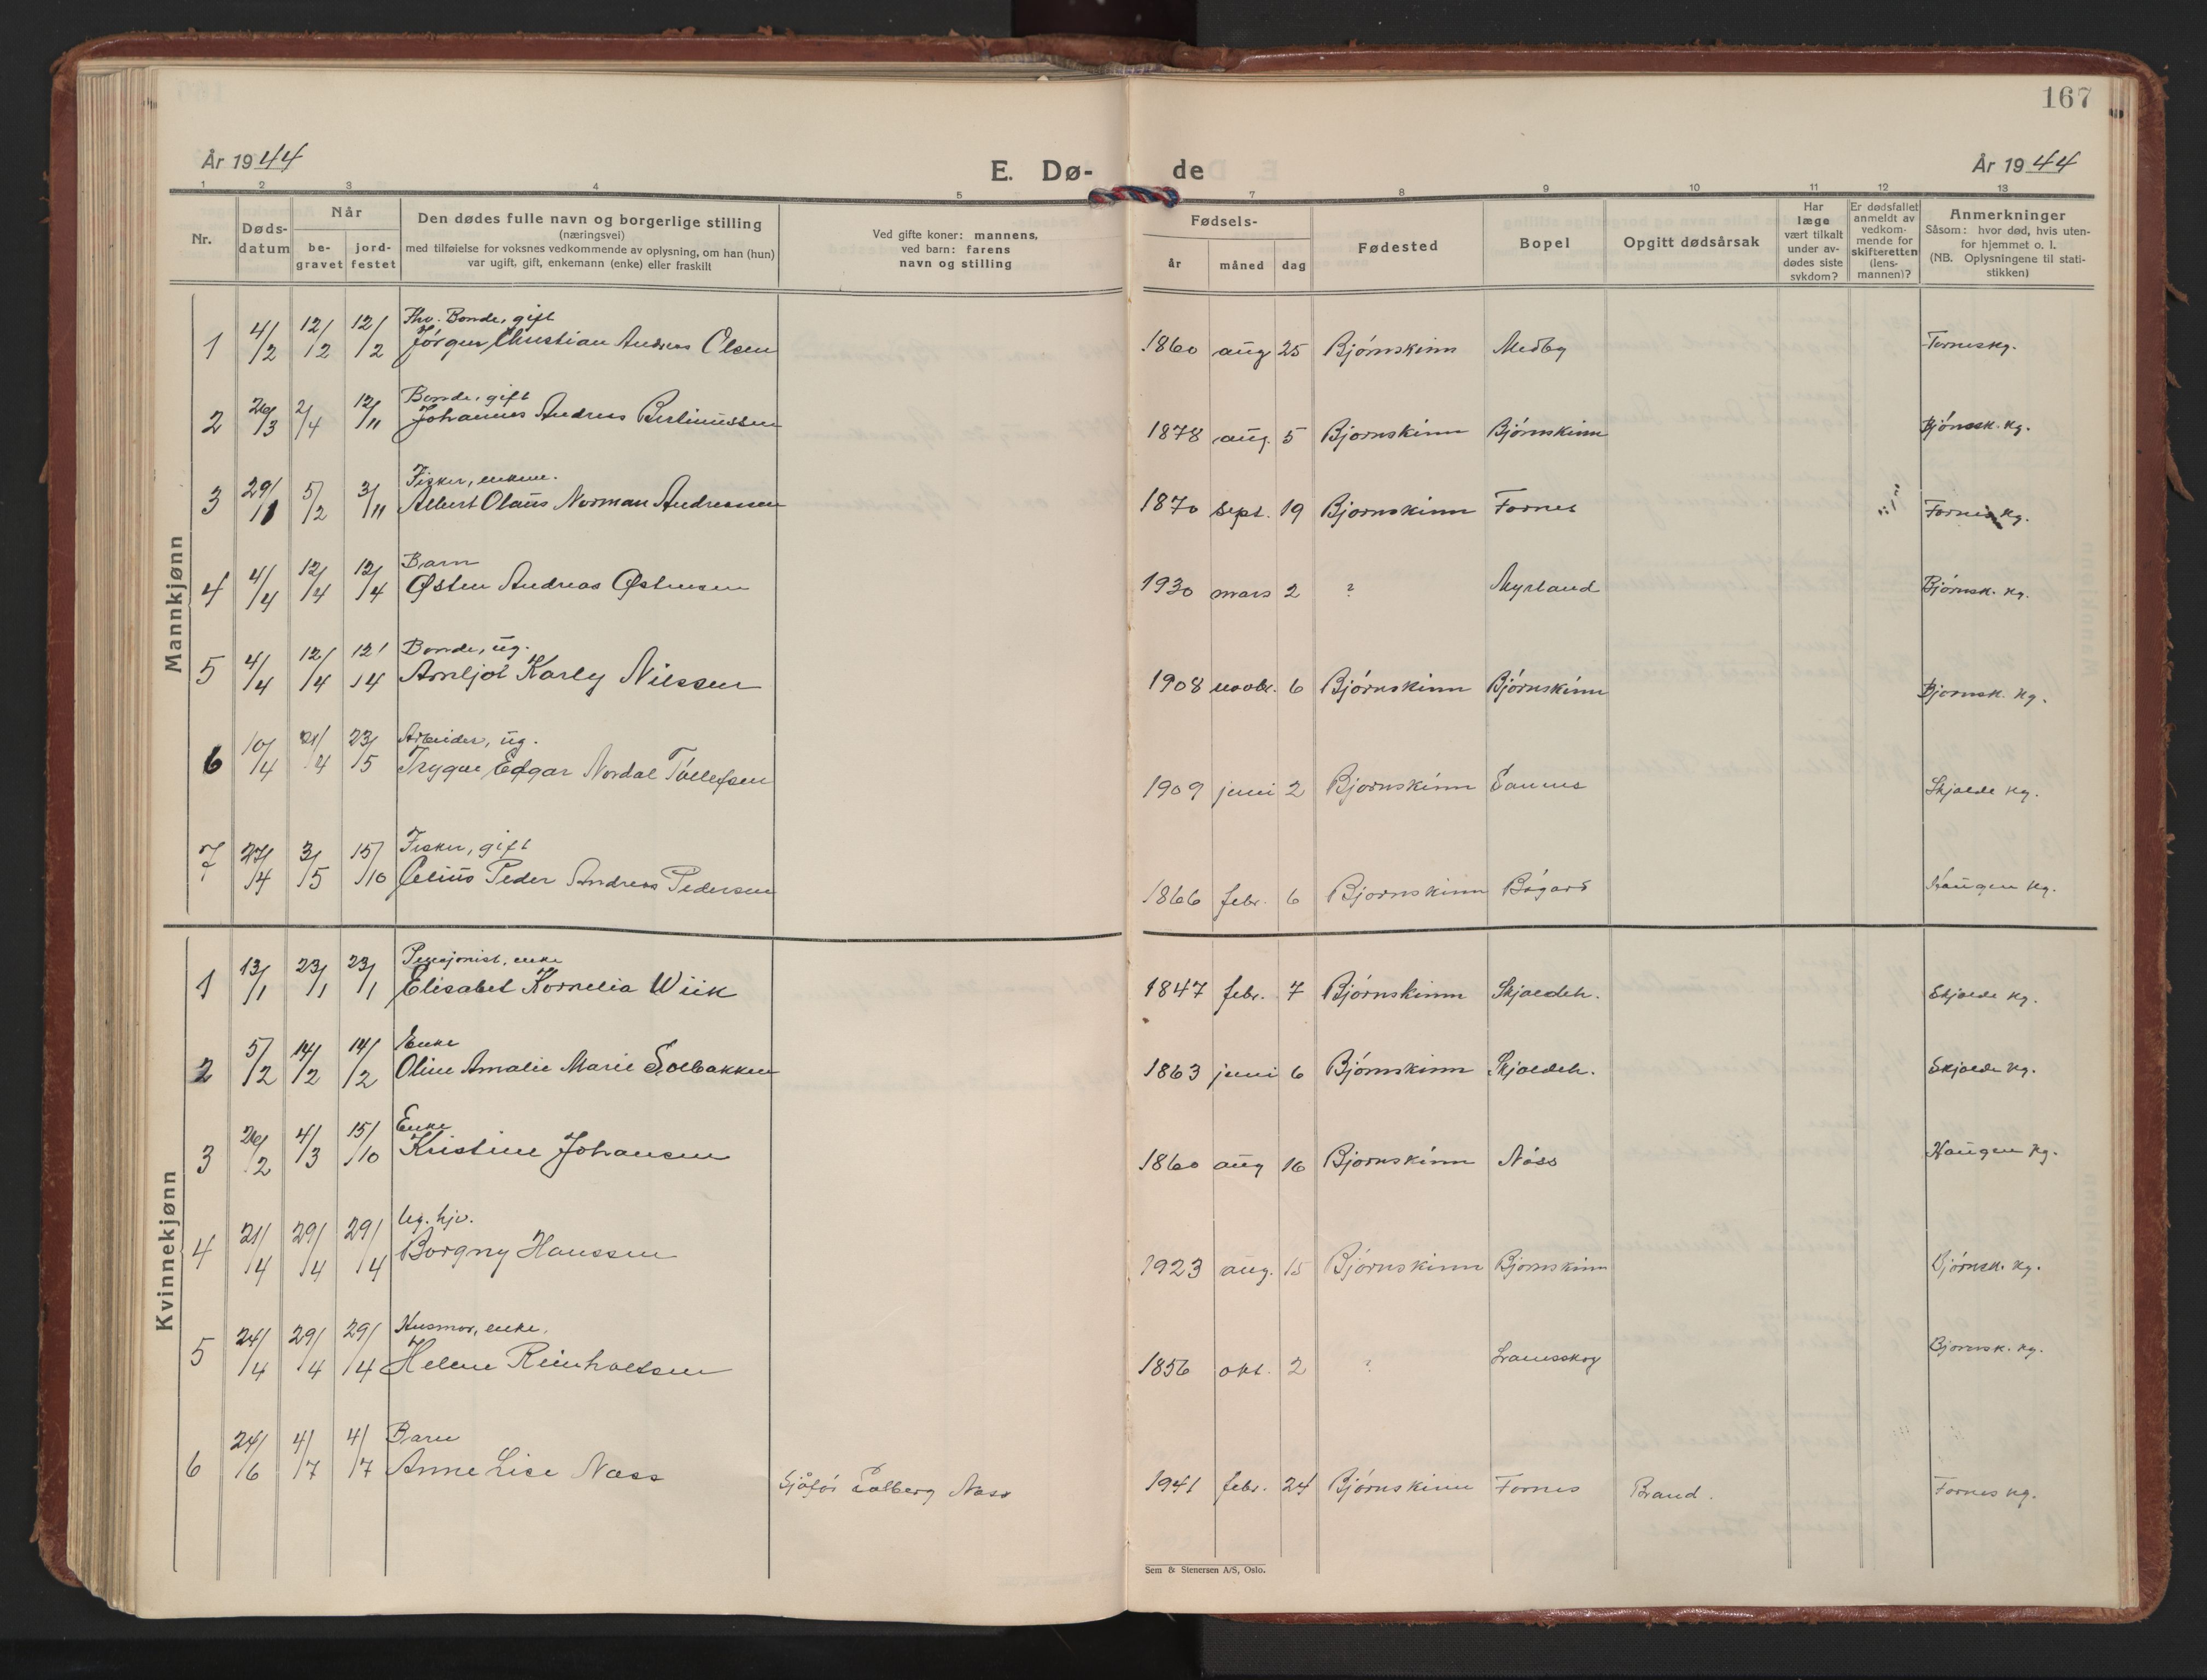 167
År 1944
E. Dø-
de
År 1944
1 2 3 4 5 7 8 9 10 11 12 13
Nr.
Døds-
datum
Når
be-
gravet
jord-
festet
Den dødes fulle navn og borgerlige stilling
(næringsvei)
med tilføielse for voksnes vedkommende av oplysning, om han (hun)
var ugift, gift, enkemann (enke) eller fraskilt
Ved gifte koner: mannens,
ved barn: farens
navn og stilling
Fødsels-
år
måned
dag
Fødested
Bopel
Opgitt dødsårsak
Har
læge
vært tilkalt
under av-
dødes siste
sykdom?
Er dødsfallet
anmeldt av
vedkom-
mende for
skifteretten
(lens-
mannen)?
Anmerkninger
Såsom: hvor død, hvis uten-
for hjemmet o. l.
(NB. Oplysningene til stati-
stikken)
Mannkjønn
Fhv. Bonde, gift
1 4/2 12/2 12/2 Jörgen Christian Andreas Olsen 1860 aug 25 Björnskinn Medby Forneskg.
Bonde, gift
2 26/3 2/4 12/11 Johannes Andreas Bertinussen 1878 aug. 5 Bjornskinn Björnskinn Björnsk. kg.
Fisker, enkem.
3 29/1 5/2 3/11 Albert Olaus Norman Andreassen 1870 sept. 19 Bjornskinn Fornes Fornes kg.
Barn
4 4/4 12/4 12/4 Østen Andreas Østensen 1930 mars 2 ? Myrland Björnsk. kg.
Bonde, ug.
5 4/4 12/4 12/4 Arnljot Karly Nilssen 1908 novbr. 6 Björnskinn Björnskinn Bjornsk. kg.
Arbeider, ug.
6 10/4 21/4 23/5 Trygve Edgar Nordal Tollefsen 1909 juni 2 Bjornskinn Sannes Skjolde kg.
Fisker, gift
7 27/4 3/5 15/10 Julius Peder Andreas Pedersen 1866 febr. 6 Bjornskinn Bögard Haugen kg.
Kvinnekjønn
Pensjonist, enke
1 13/1 23/1 23/1 Elisabet Kornelia Wiik 1847 febr. 7 Björnskinn Skjoldeh. Skjolde kg.
Enke
2 5/2 14/2 14/2 Oline Amalie Marie Solbakken 1863 juni 6 Björnskinn Skjoldeh. Skjolde kg.
Enke
3 26/2 4/3 15/10 Kristine Johansen 1860 aug 16 Bjornskinn Nöss Haugen kg.
ug. hjv.
4 21/4 29/4 29/4 Borgny Hanssen 1923 aug. 15 Björnskinn Bjornskinn Björnsk. kg.
Husmor, enke.
5 24/4 29/4 29/4 Helene Reinholtsen 1856 okt. 2 ? Bjornsk. kg.
Barn
6 24/6 4/7 4/7 Anne Lise Næss Sjåför Solberg Næss 1941 febr. 24 Björnskinn Fornes Brand. Fornes kg.
Sem & Stenersen A/S, Oslo.